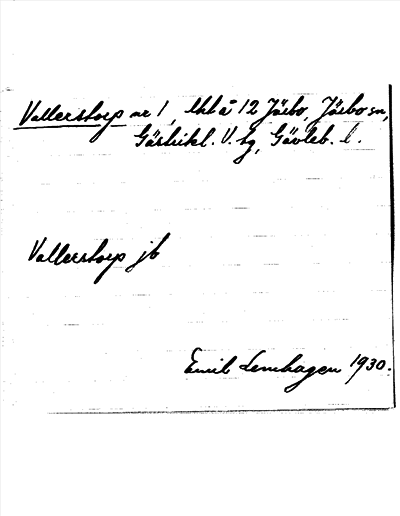 Vallerstorp nr 1, lht å 12 Järbo, Järbo sn,
Gästrikl. V. tg, Gävleb. l.
Vallerstorp jb
Emil Lernhagen 1930.